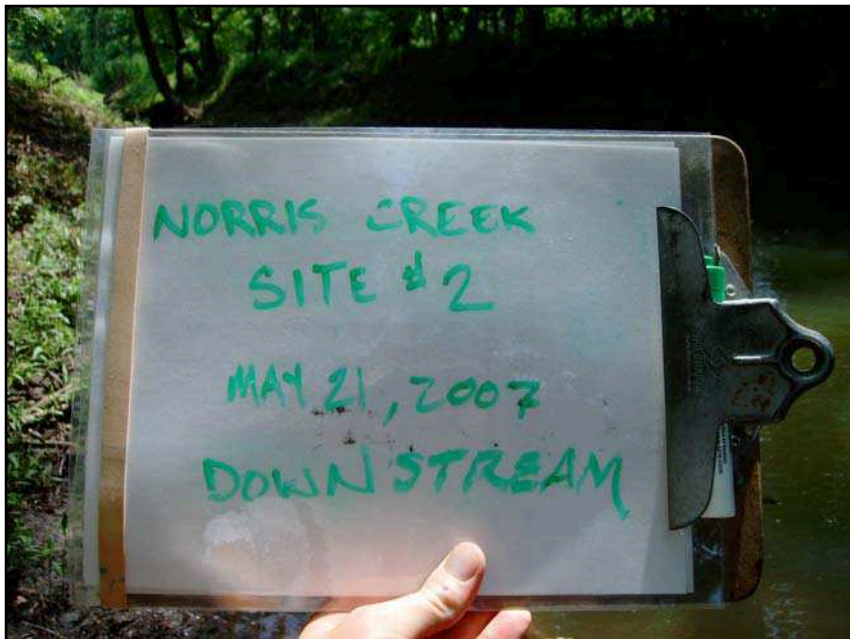 NORRIS CREEK
SITE #2
MAY 21, 2007
DOWNSTREAM